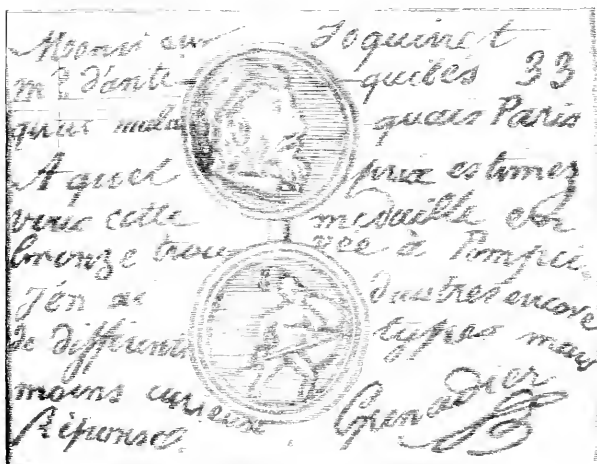 Monsieur Foquinet
md d'antequibés 33
quai malaquais Paris
A quel prix estimez
vous cette médaille en
bronze trouvée à Pompei
J'en ai d'autres encore
de différents types mais
moins curieuse Grenadier
Réponse.